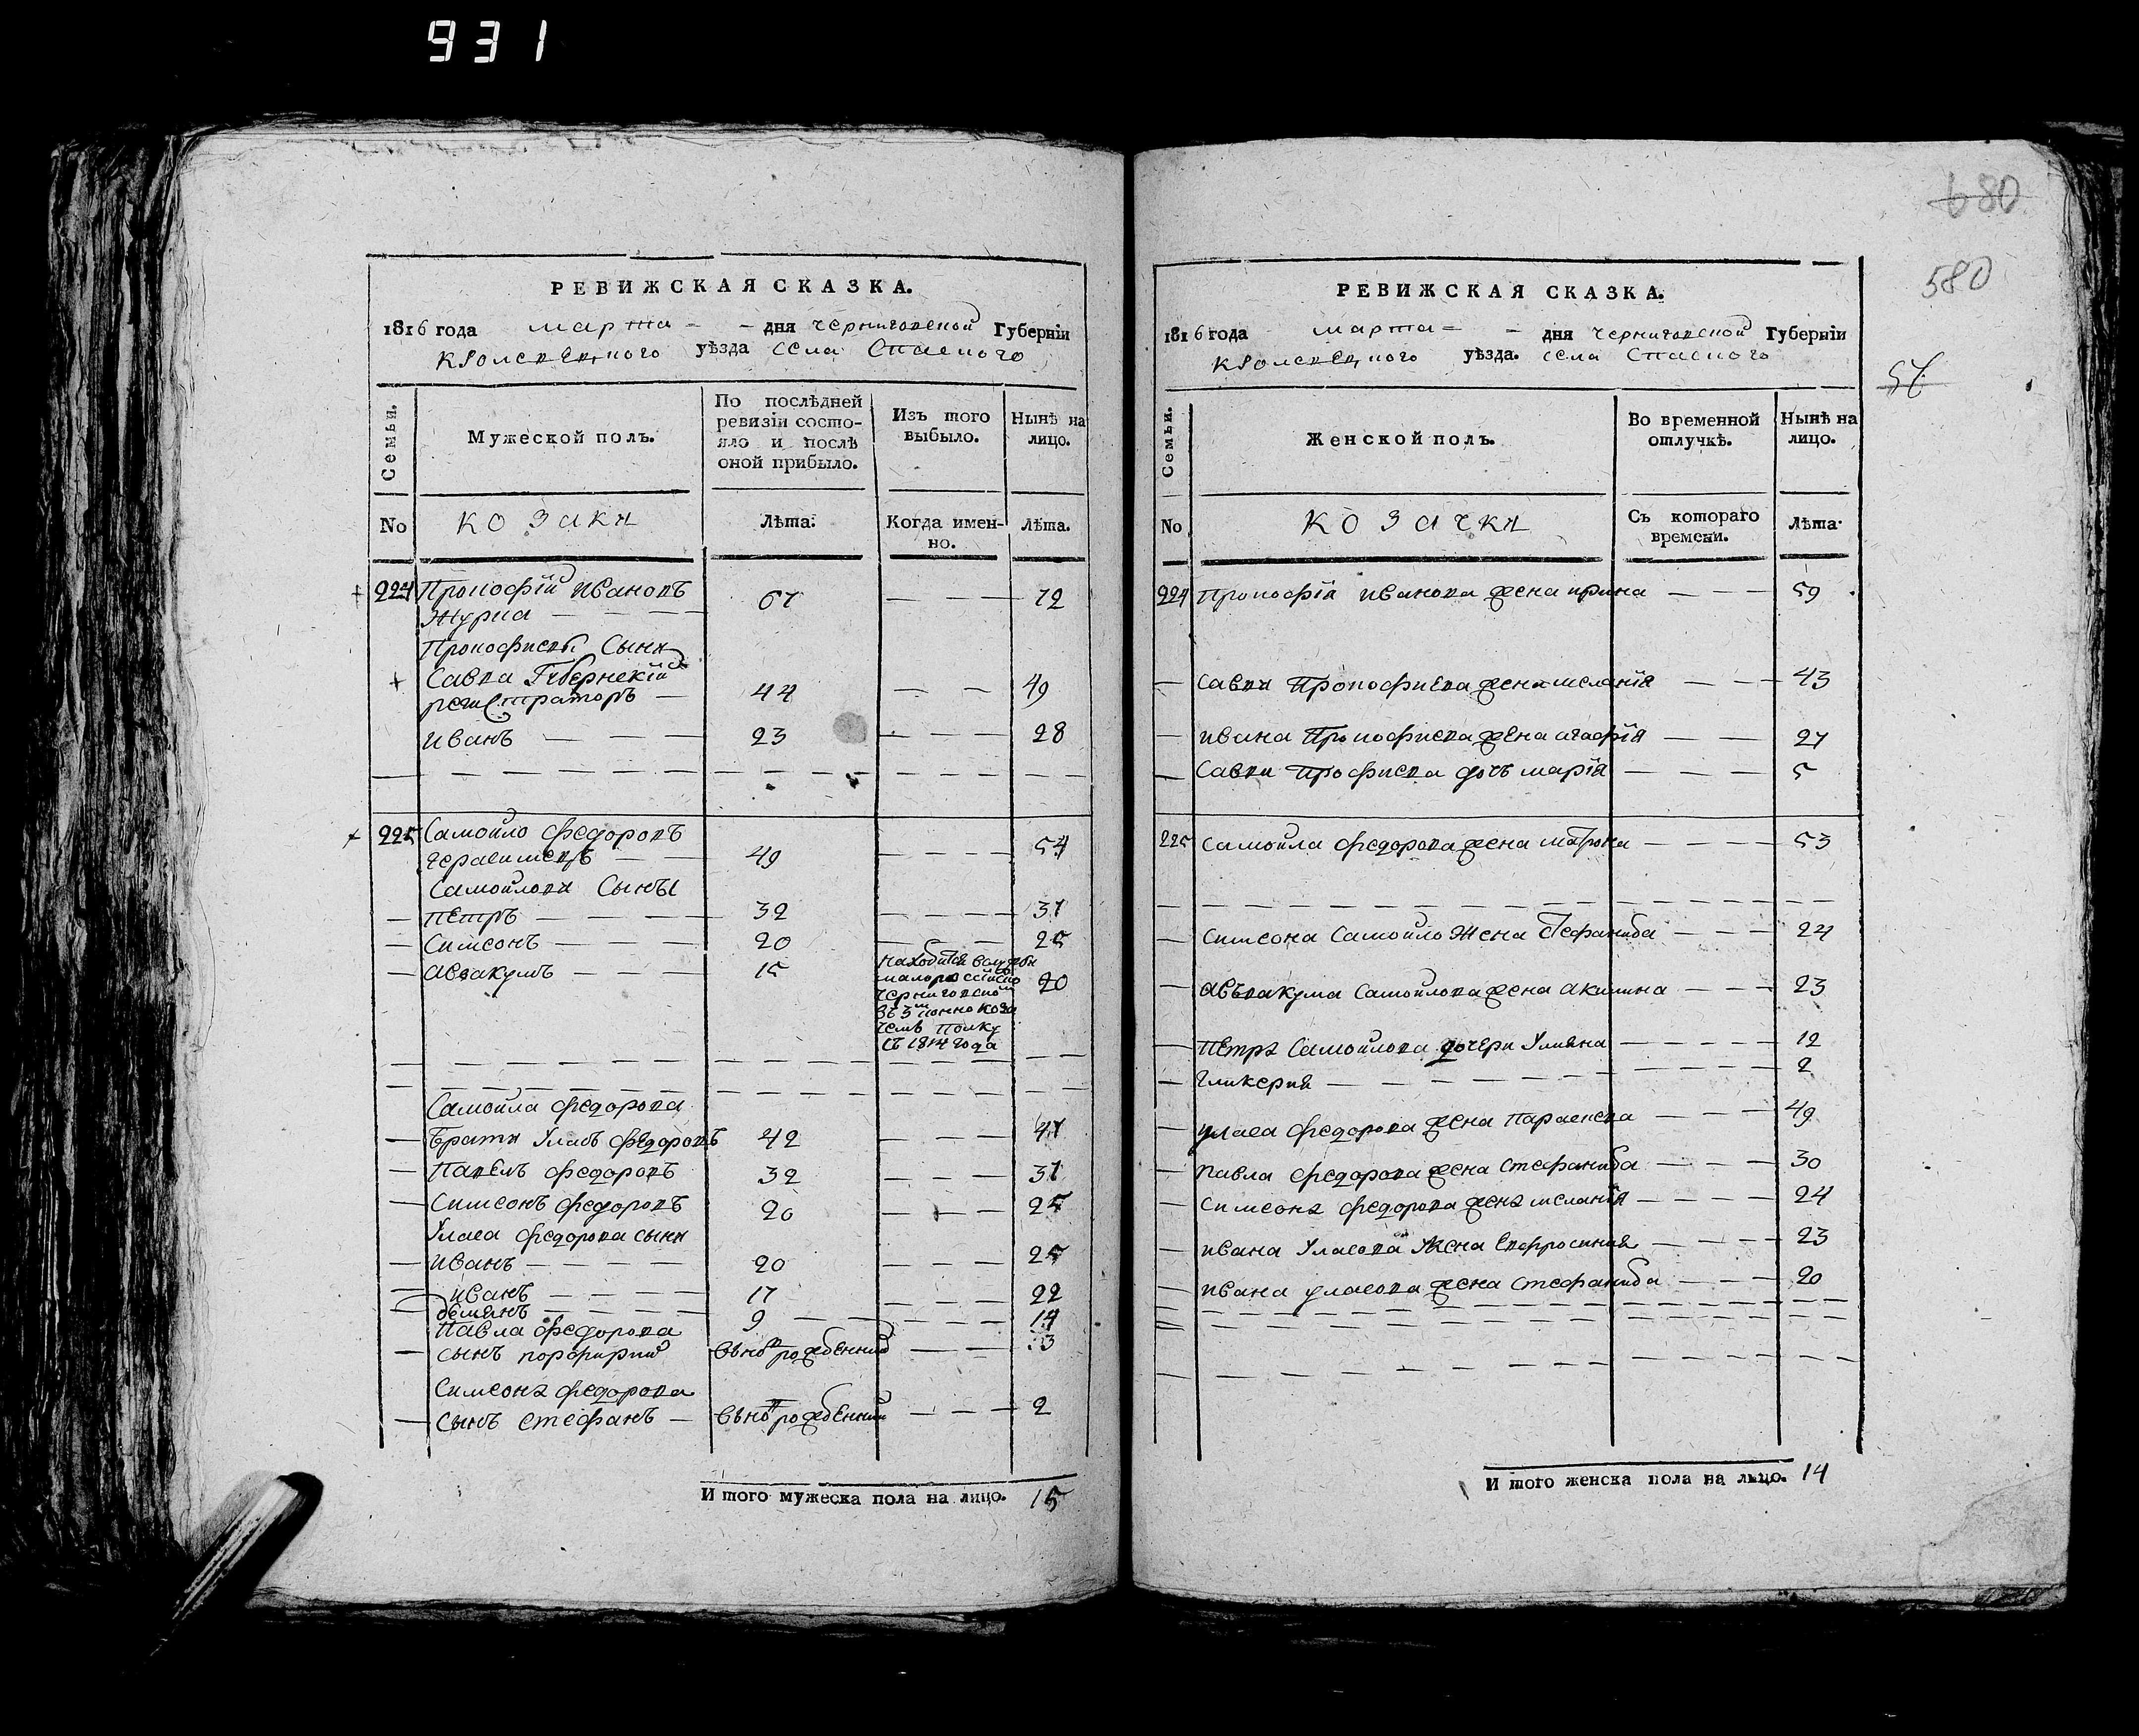 931
680
580
РЕВИЖСКАЯ СКАЗКА.
1816 года марта - - дня черниговской Губерніи
кролевецкого уѣзда села Спаского
Семьи.
Мужеской полъ.
По послѣдней
ревизіи состо-
яло и послѣ
оной прибыло.
Изъ того
выбыло.
Нынѣ на
лицо.
No
козаки
Лѣта.
Когда имен-
но.
Лѣта.
224 Прокофій Ивановъ
Журба — — — — 67 — — — — 72
Прокофиевы Сыни
Савка Губернскій
регистраторъ — 44 — — — 49
Иванъ — — — 23 — — — — 28
225 Самойло федоровъ
герасименъко — — 49 — — — — 54
Самойлови Сынъи
— Петръ — — — — 32 — — — — 37
— Симеонъ — — — — 20 — — — 25
— Авакумъ — — — 15 20
находится вслужби
малороссійско
черниговском
въ 3 конно коза
чемъ Полку
съ 1814 года
Самойла федорова
— братя Уласъ федоровъ 42 — — — 47
— Павелъ федоровъ 32 — — — 37
— Симеонъ федоровъ 20 — — — 25
Уласа федорова сыни
— Иванъ — — — — 20 — — — 25
— Иванъ — — — 17 — — — 22
— демянъ — — — — 9 — — — — 14
Павла федорова
— сынъ порфирий вьновъ рожденний — — — 3
Симеона федорова
— сынъ стефанъ — вьновъ рожденний — — — 2
И того мужеска пола на лицо. 15
РЕВИЖСКАЯ СКАЗКА.
1816 года марта - - дня черниговской Губерніи
кролевецкого уѣзда. села Спаского
Семьи.
Женской полъ.
Во временной
отлучкѣ.
Нынѣ на
лицо.
No
козачки
Съ котораго
времени.
Лѣта.
224 Прокофія иванова жена ирина — — — 59
— савки Прокофиева жена меланія — — — 43
— ивана Прокофиева жена агафія — — 27
— Савки Профиева дочъ марія — — — 5
225 Самойла федорова жена матрона — — — — 53
— симеона Самойло жена стефанида — — — 24
— авъвакума самойлова жена акилина — — — 23
— Петра Самойлова дочери Улияна — — — — 12
— гликерия — — — — 2
— уласа федорова жена Параскева — — — 49
— павла федорова жена стефанида — — — 30
— симеона федорова жена меланія — — — — 24
— ивана Уласова жена Евфросиния — — — — 23
— ивана уласова жена стефанида — — — 20
И того женска пола на лицо. 14